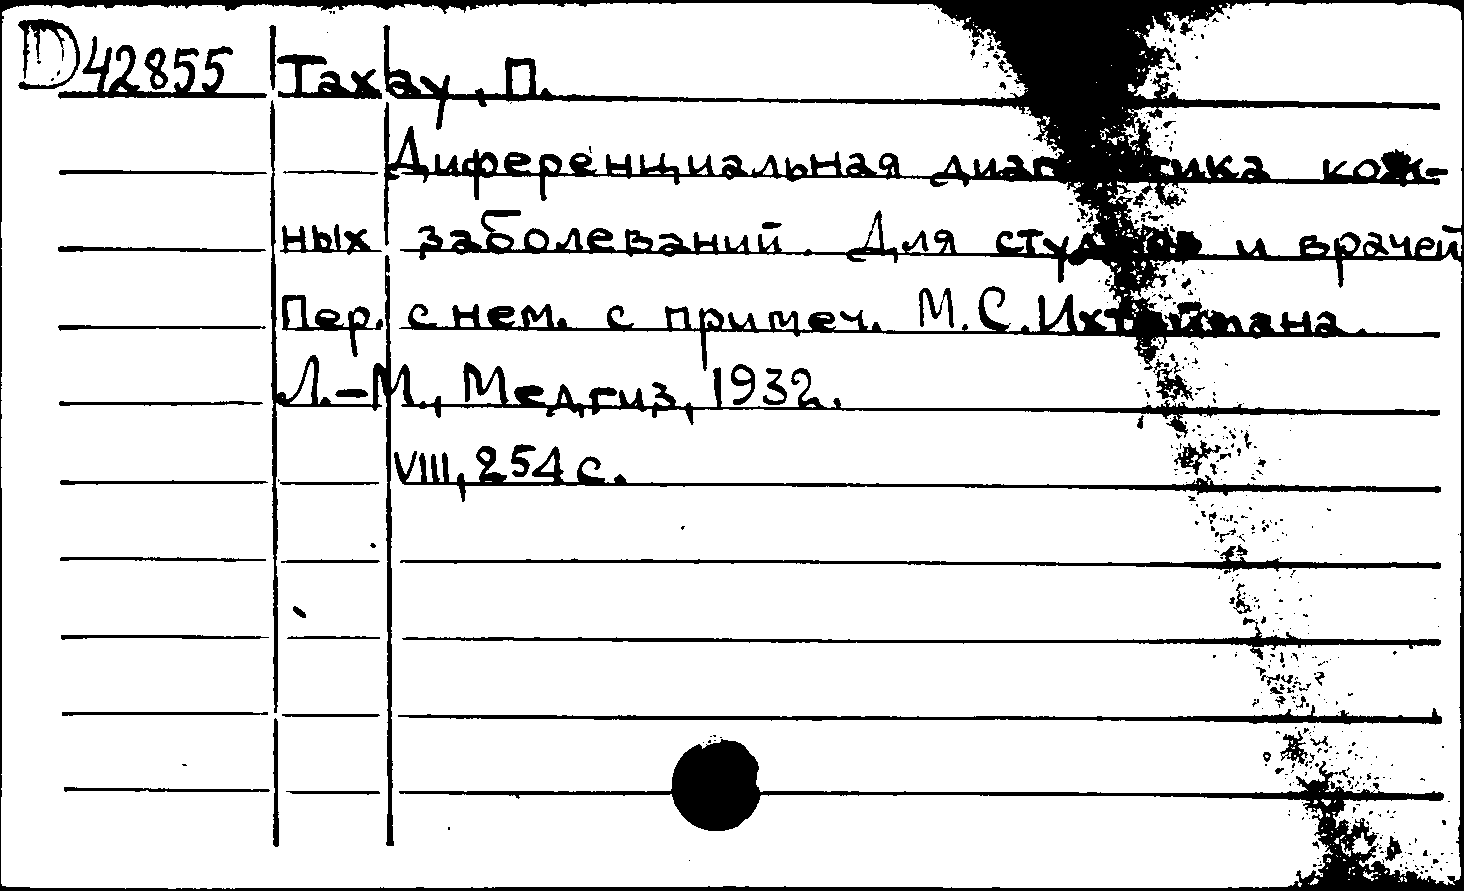 D42855 Тахау, П.
Диференциальная диагностика кож-
ных заболеваний. Для и врачей
Пер. с нем. с примеч. М.С.Ихтеймана.
Л.-М., Медгиз, 1932.
VIII, 254 с.